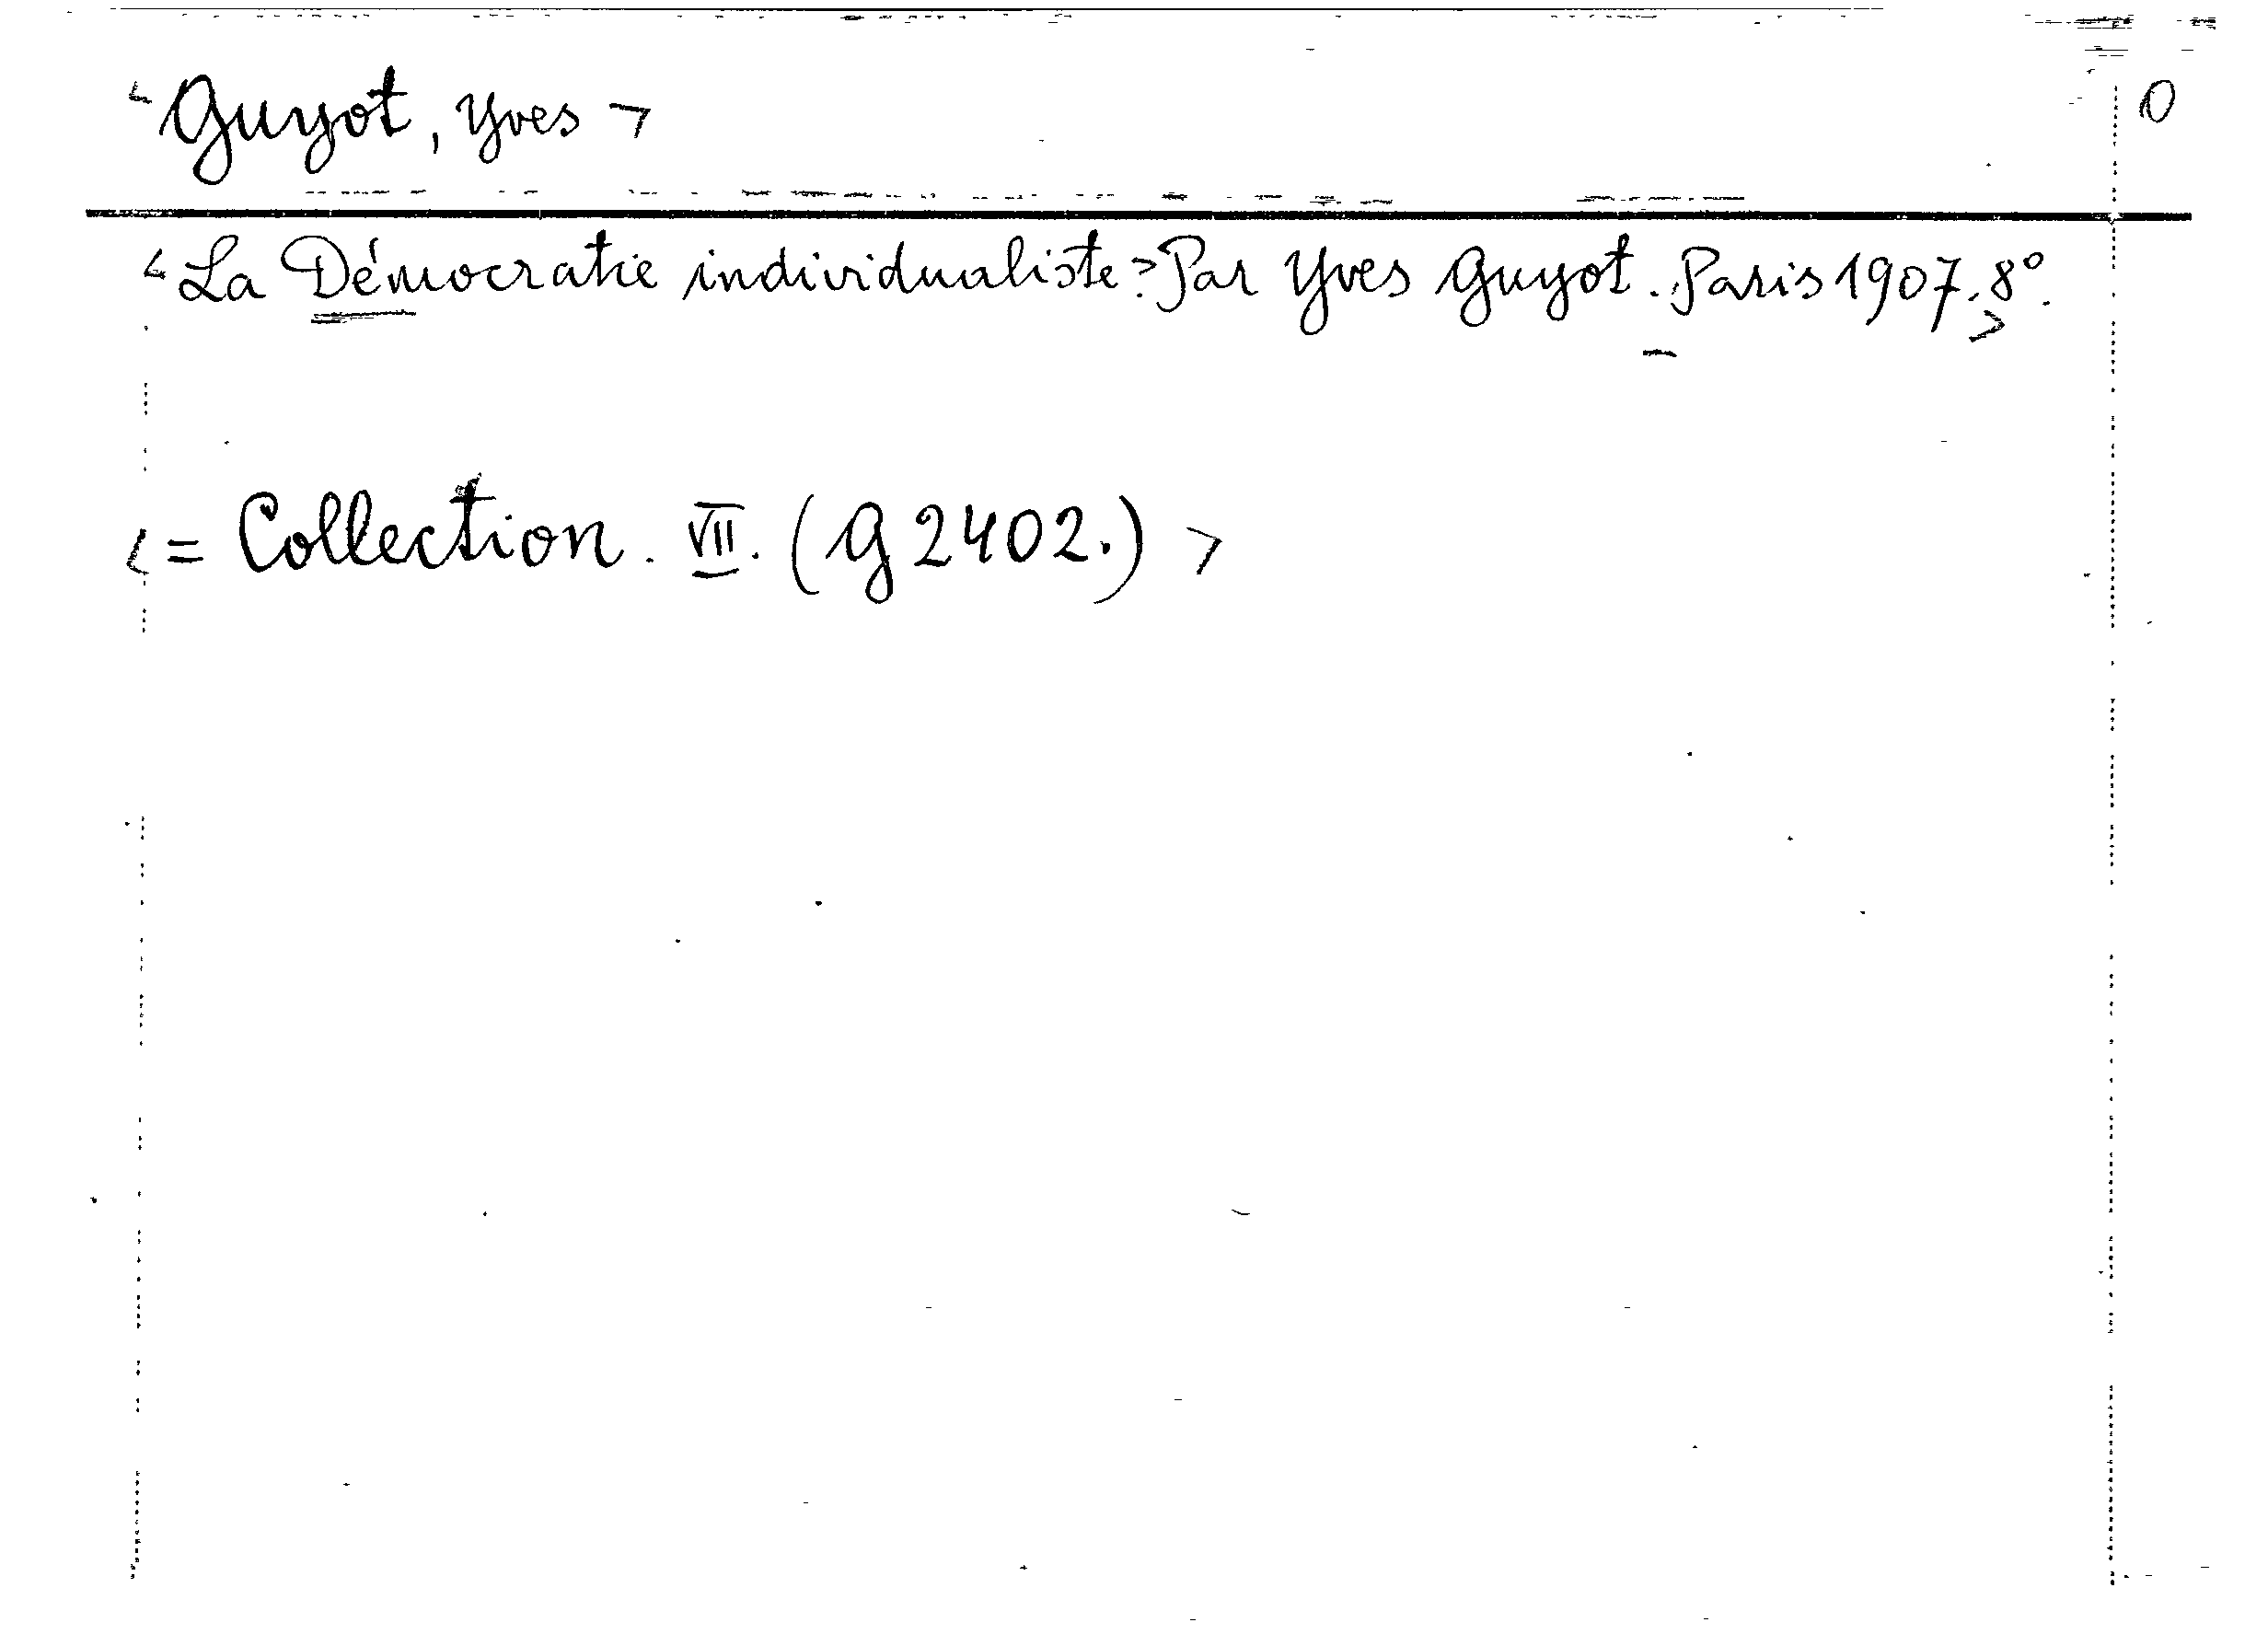 Guyot, Yves 0
La Démocratie individualiste. Par Yves Guyot. Paris 1907. 8°.
= Collection. VII. (G 2402.)